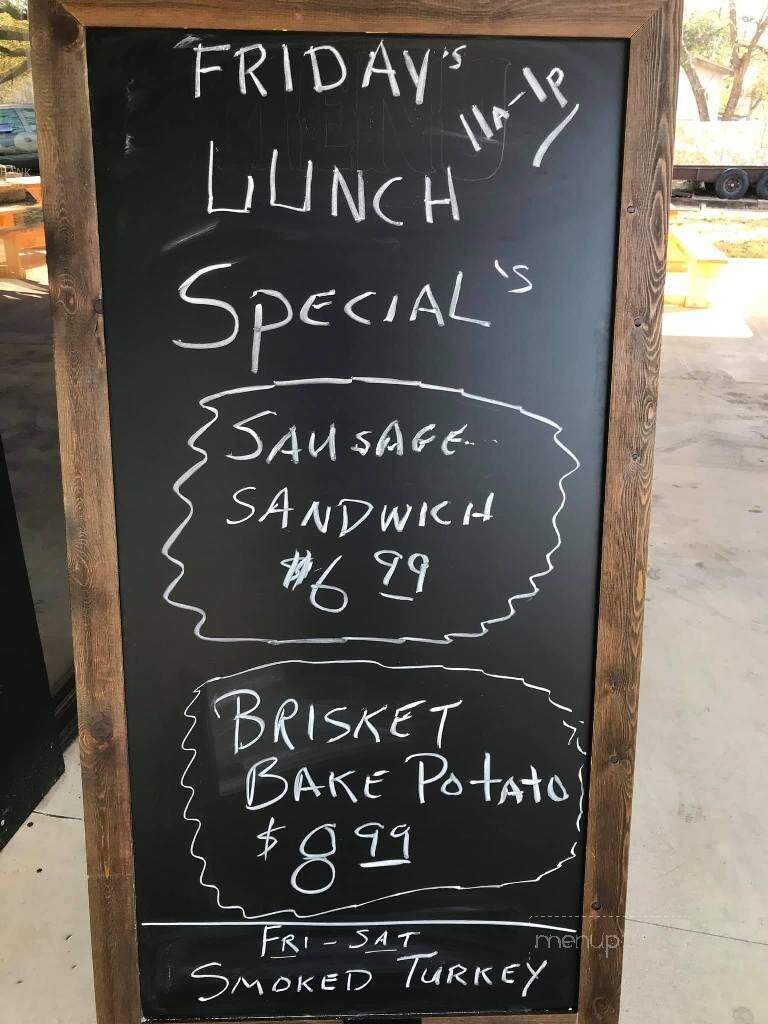 FRIDAY's
11A-1P
LUNCH
SPECIAL's
SAUSAGE
SANDWICH
$6 99
BRISKET
BAKE POtAtO
$8 99
FRI - SAT
SMOKED TURKEY
menup